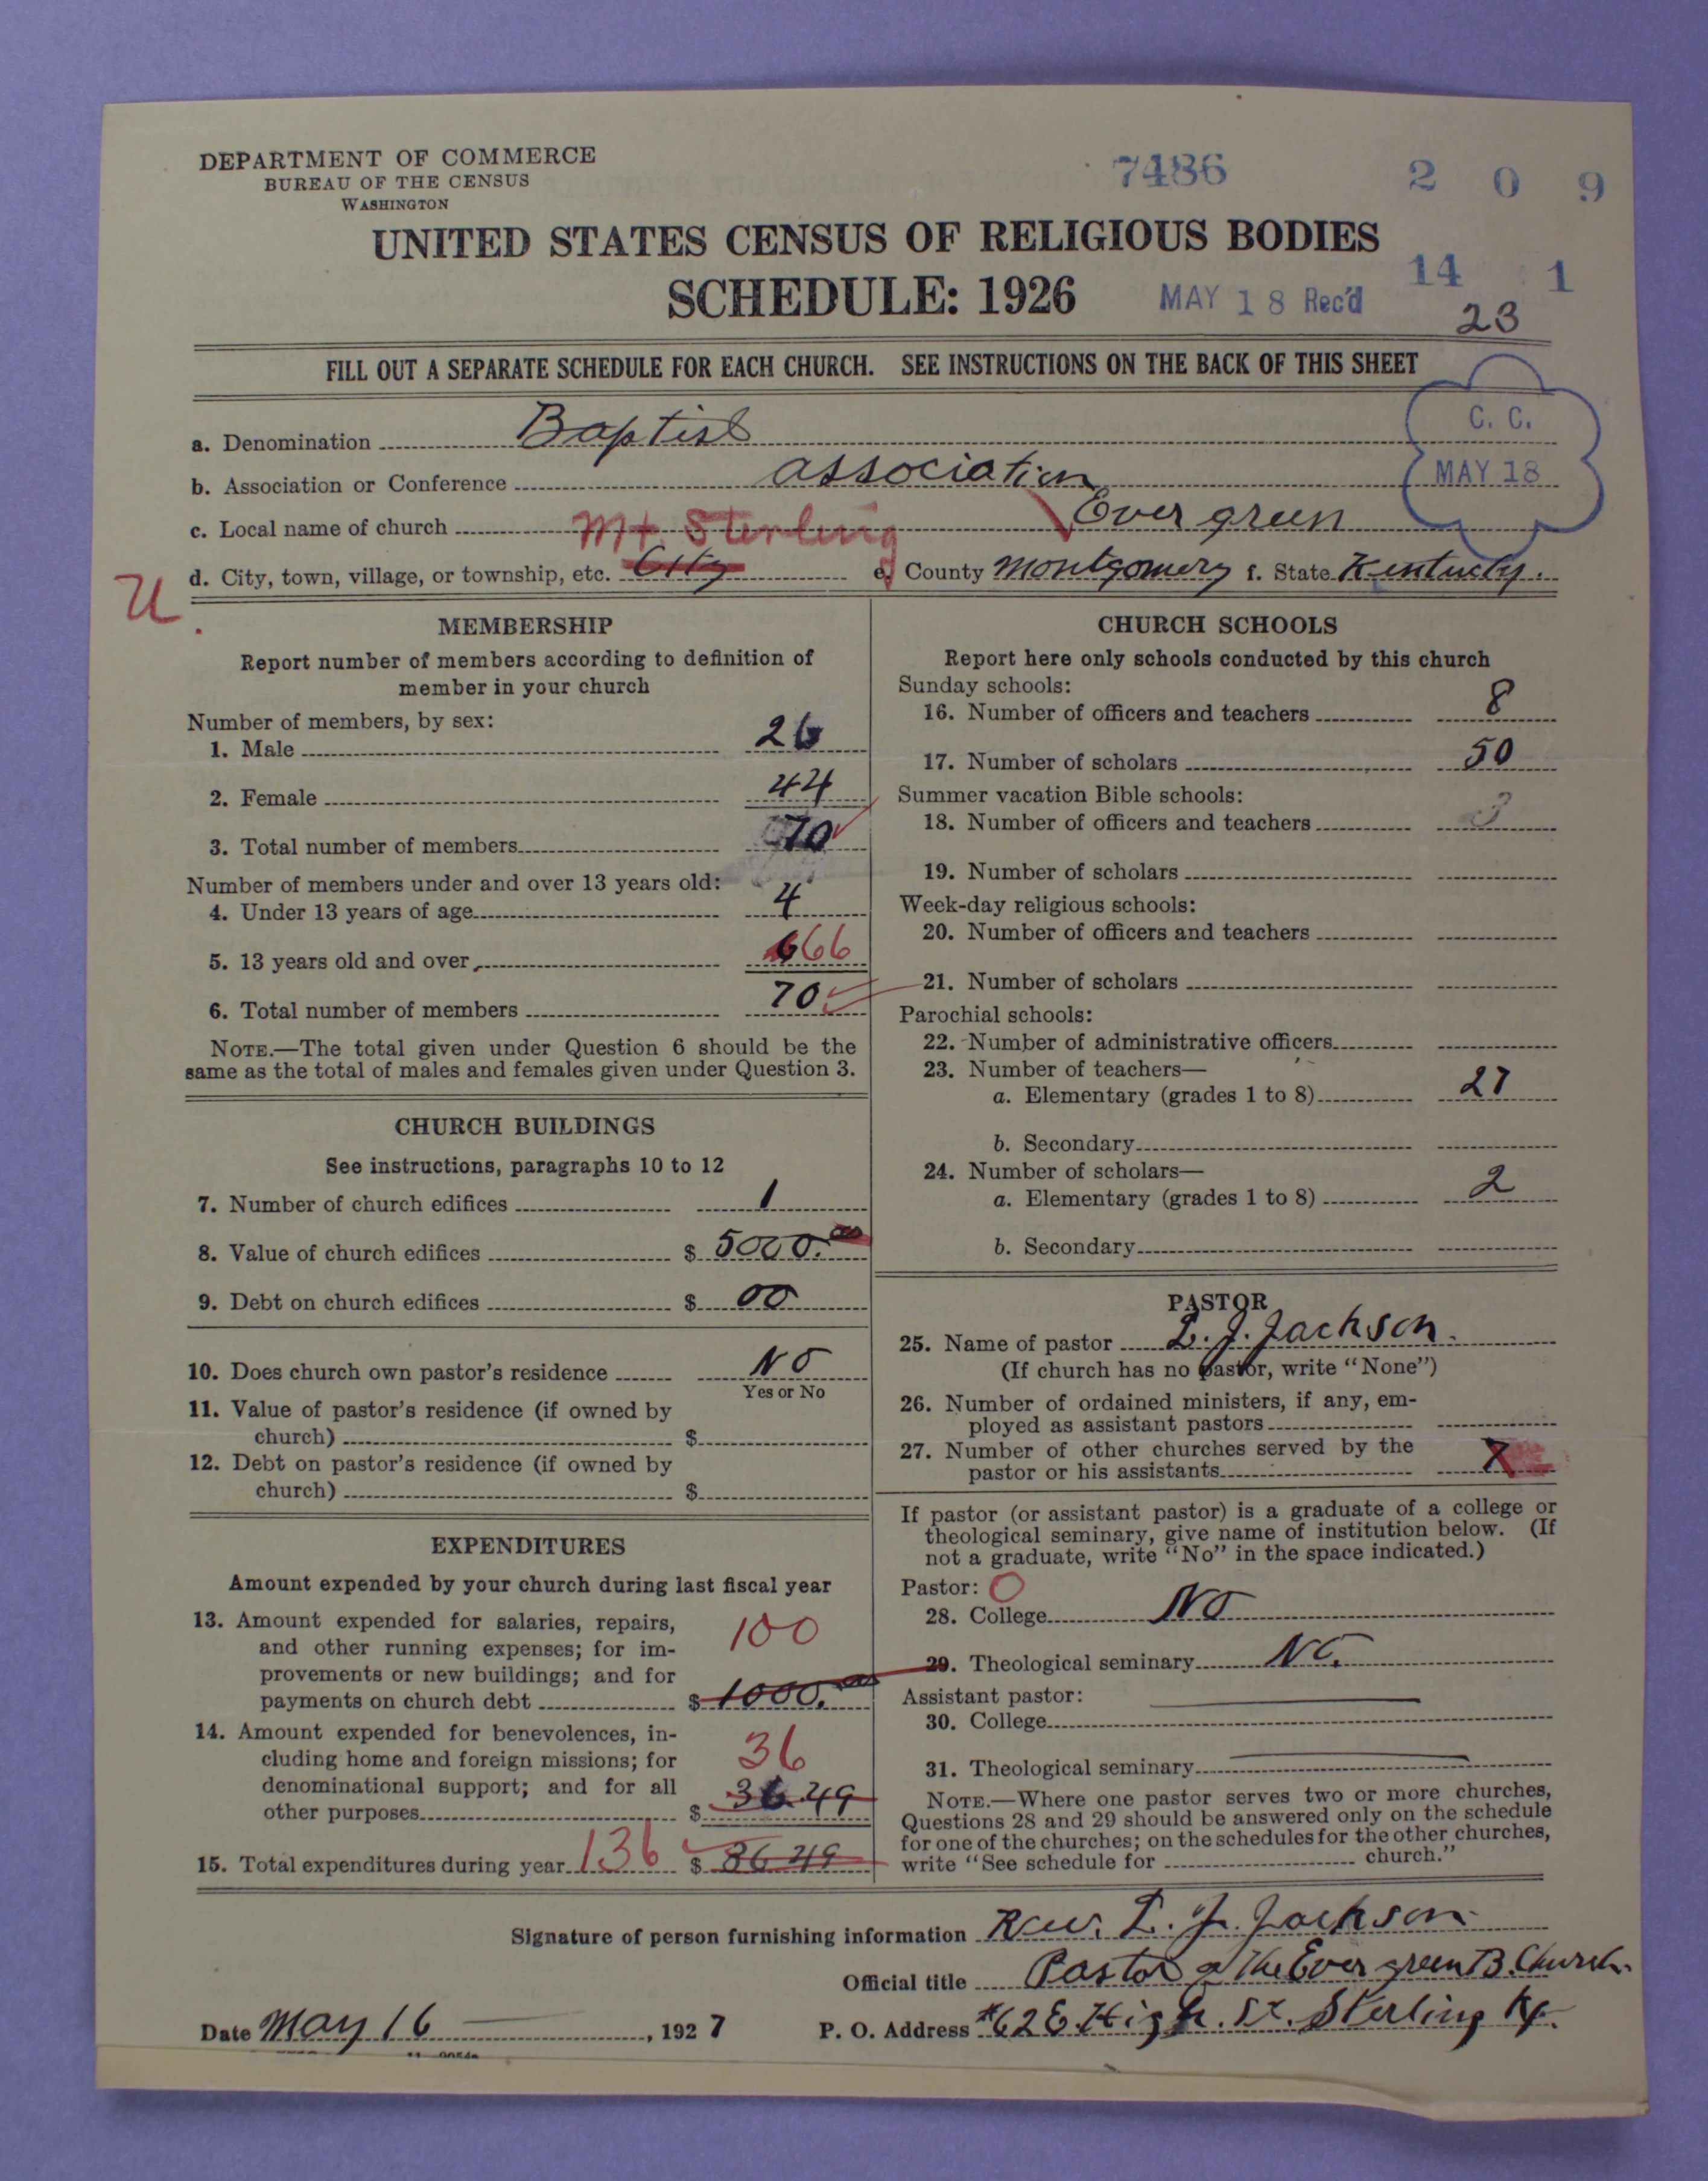 DEPARTMENT OF COMMERCE
BUREAU OF THE CENSUS
WASHINGTON
7486
2 0 9
UNITED STATES CENSUS OF RELIGIOUS BODIES
14 1
SCHEDULE: 1926
MAY 18 Rec'd
23
FILL OUT A SEPARATE SCHEDULE FOR EACH CHURCH. SEE INSTRUCTIONS ON THE BACK OF THIS SHEET
C. C.
MAY 18
a. Denomination Baptist
b. Association or Conference association
c. Local name of church Ever green
Mt. Sterling
d. City, town, village, or township, etc. City e. County Montgomery f. State Kentucky.
U.
MEMBERSHIP
Report number of members according to definition of
member in your church
Number of members, by sex:
1. Male 26
2. Female 44
3. Total number of members 70
Number of members under and over 13 years old:
4. Under 13 years of age 4
5. 13 years old and over 66
6. Total number of members 70
NOTE.—The total given under Question 6 should be the
same as the total of males and females given under Question 3.
CHURCH BUILDINGS
See instructions, paragraphs 10 to 12
7. Number of church edifices 1
8. Value of church edifices $ 5000.00
9. Debt on church edifices $ 00
10. Does church own pastor's residence No
Yes or No
11. Value of pastor's residence (if owned by
church) $
12. Debt on pastor's residence (if owned by
church) $
EXPENDITURES
Amount expended by your church during last fiscal year
13. Amount expended for salaries, repairs,
and other running expenses; for im-
provements or new buildings; and for
payments on church debt $ 1000.00
100
14. Amount expended for benevolences, in-
cluding home and foreign missions; for
denominational support; and for all
other purposes $ 36.49
36
15. Total expenditures during year 136 $ 86 49
CHURCH SCHOOLS
Report here only schools conducted by this church
Sunday schools:
16. Number of officers and teachers 8
17. Number of scholars 50
Summer vacation Bible schools:
18. Number of officers and teachers 3
19. Number of scholars
Week-day religious schools:
20. Number of officers and teachers
21. Number of scholars
Parochial schools:
22. Number of administrative officers
23. Number of teachers—
a. Elementary (grades 1 to 8) 27
b. Secondary
24. Number of scholars—
a. Elementary (grades 1 to 8) 2
b. Secondary
PASTOR
25. Name of pastor L. J. Jackson.
(If church has no pastor, write "None")
26. Number of ordained ministers, if any, em-
ployed as assistant pastors
27. Number of other churches served by the
pastor or his assistants
If pastor (or assistant pastor) is a graduate of a college or
theological seminary, give name of institution below. (If
not a graduate, write "No" in the space indicated.)
Pastor: 0
28. College No
29. Theological seminary No.
Assistant pastor:
30. College
31. Theological seminary
NOTE.—Where one pastor serves two or more churches,
Questions 28 and 29 should be answered only on the schedule
for one of the churches; on the schedules for the other churches,
write "See schedule for church."
Signature of person furnishing information Rev. L. J. Jackson
Official title Pastor of The Ever green B. Church.
Date May 16, 1927 P. O. Address #62 E. High. St. Sterling Ky.